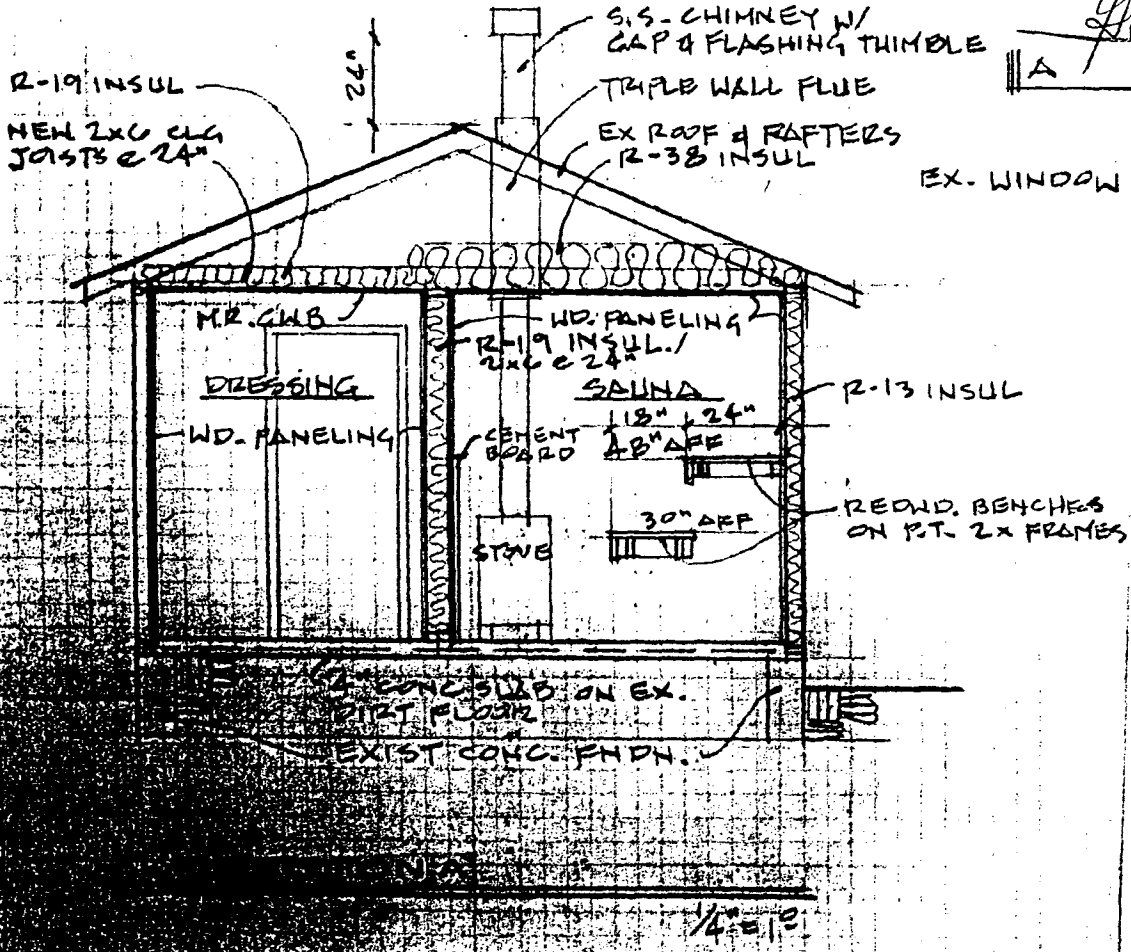 S.S. CHIMNEY W/
CAP & FLASHING THIMBLE
A
32"
R-19 INSUL
TRIPLE WALL FLUE
NEW 2x6 CLG
JOISTS @ 24"
EX ROOF & RAFTERS
R-38 INSUL
EX. WINDOW
M.R. GWB
WD. PANELING
R-19 INSUL./
2x6 @ 24"
DRESSING
SAUNA
R-13 INSUL
18" 24"
WD. PANELING
CEMENT
BOARD
48" AFF
REDWD. BENCHES
ON P.T. 2x FRAMES
30" AFF
STOVE
4" CONC SLAB ON EX.
DIRT FLOOR
EXIST CONC. FNDN.
1/4" = 1'0